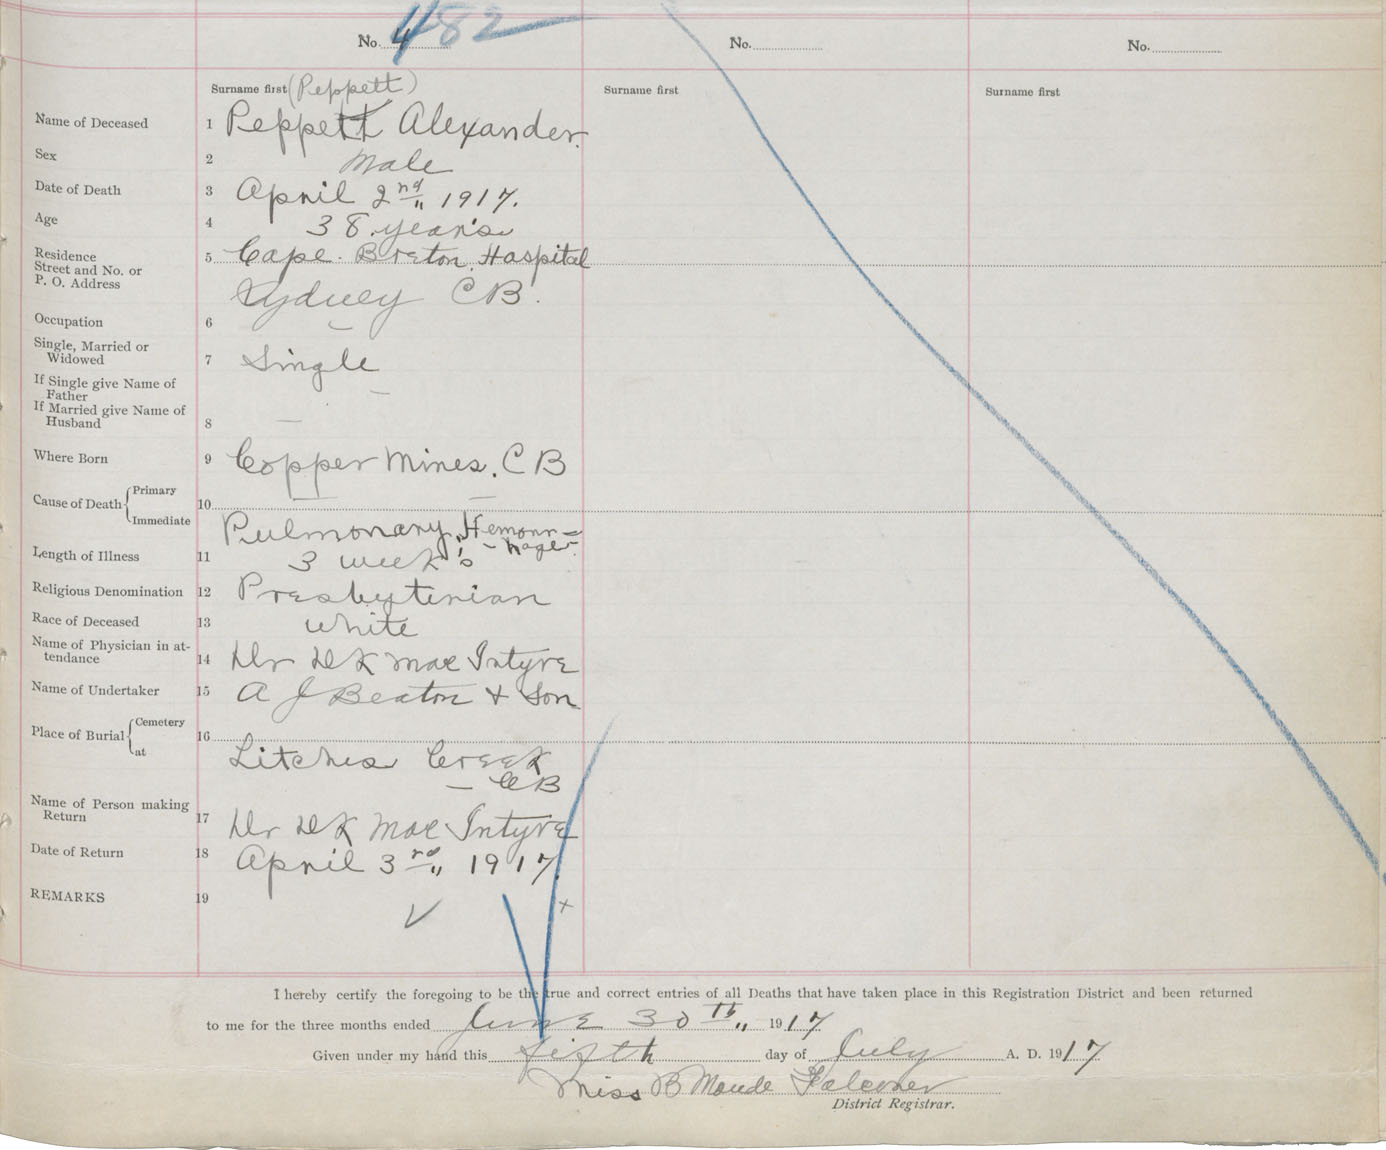 482
No. 4 No. No.
Surname first (Peppett) Surname first Surname first
Name of Deceased 1 Peppett Alexander.
Sex 2 Male
Date of Death 3 April 2nd,, 1917.
Age 4 38 year's
Residence 5 Cape Breton Hospital
Street and No. or
P. O. Address Sydney CB.
Occupation 6 —
Single, Married or
Widowed 7 Single
If Single give Name of
Father —
If Married give Name of
Husband 8 —
Where Born 9 Copper Mines. CB
Cause of Death { Primary 10 — —
Immediate Pulmonary Hemorr-
-hage.
Length of Illness 11 3 week's
Religious Denomination 12 Presbyterian
Race of Deceased 13 White
Name of Physician in at-
tendance 14 Dr DK Mac Intyre
Name of Undertaker 15 A J Beaton + Son
Place of Burial { Cemetery 16
at Litches Creek
— CB
Name of Person making
Return 17 Dr DK Mac Intyre
Date of Return 18 April 3rd,, 1917.
REMARKS 19
I hereby certify the foregoing to be the true and correct entries of all Deaths that have taken place in this Registration District and been returned
to me for the three months ended June 30th,, 1917
Given under my hand this fifth day of July A. D. 1917
Miss B Maude Falconer
District Registrar.